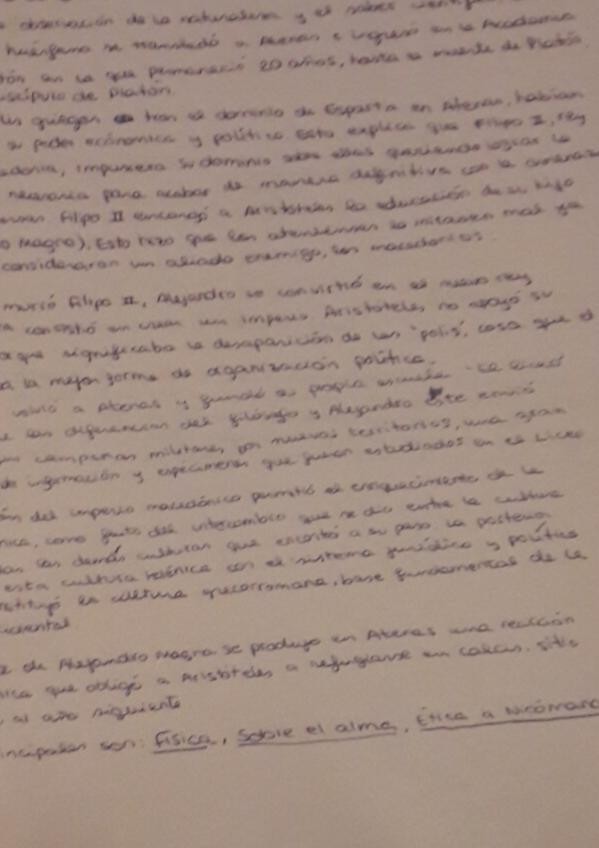 observación de la naturaleza y el saber
huérfano se trasladó a Atenas e ingresó en la Academia
tón en la que permaneció 20 años, hasta la muerte de Platón.
scípulo de Platón.
griegas tras el dominio de Esparta en Atenas, habían
su poder económico y político esto explica que Filipo II, rey
edonia, impusiera su dominio sobre ellas queriendo lograr la
necesaria para acabar de manera definitiva con la amenaza
Filipo II encargó a Aristóteles la educación de su hijo
o Magno). Esto hizo que los atenienses lo mirasen mal ya
consideraran un aliado enemigo, los macedonios.
murió Filipo II, Alejandro se convirtió en el nuevo rey
consistió en crear un imperio Aristóteles no apoyó su
que significaba la desaparición de las "polis", cosa que él
a la mejor forma de organización política.
volvió a Atenas y fundó su propia escuela "La Liceo
e las diferencias del filósofo y Alejandro este envió
campañas militares, por nuevos territorios, una gran
de información y especímenes que fueron estudiados en el Liceo
ón del imperio macedónico permitió el enriquecimiento de la
nica, como fruto del intercambio que se dio entre la cultura
las demás culturas que encontró a su paso. La posterior
esta cultura helénica con el sistema jurídico y político
stituyó la cultura grecorromana, base fundamental de la
ccidental
e de Alejandro Magno se produjo en Atenas una reacción
nica que obligó a Aristóteles a refugiarse en Calcis, sitio
al año siguiente
incipales son: Física, Sobre el alma, Ética a Nicómaco